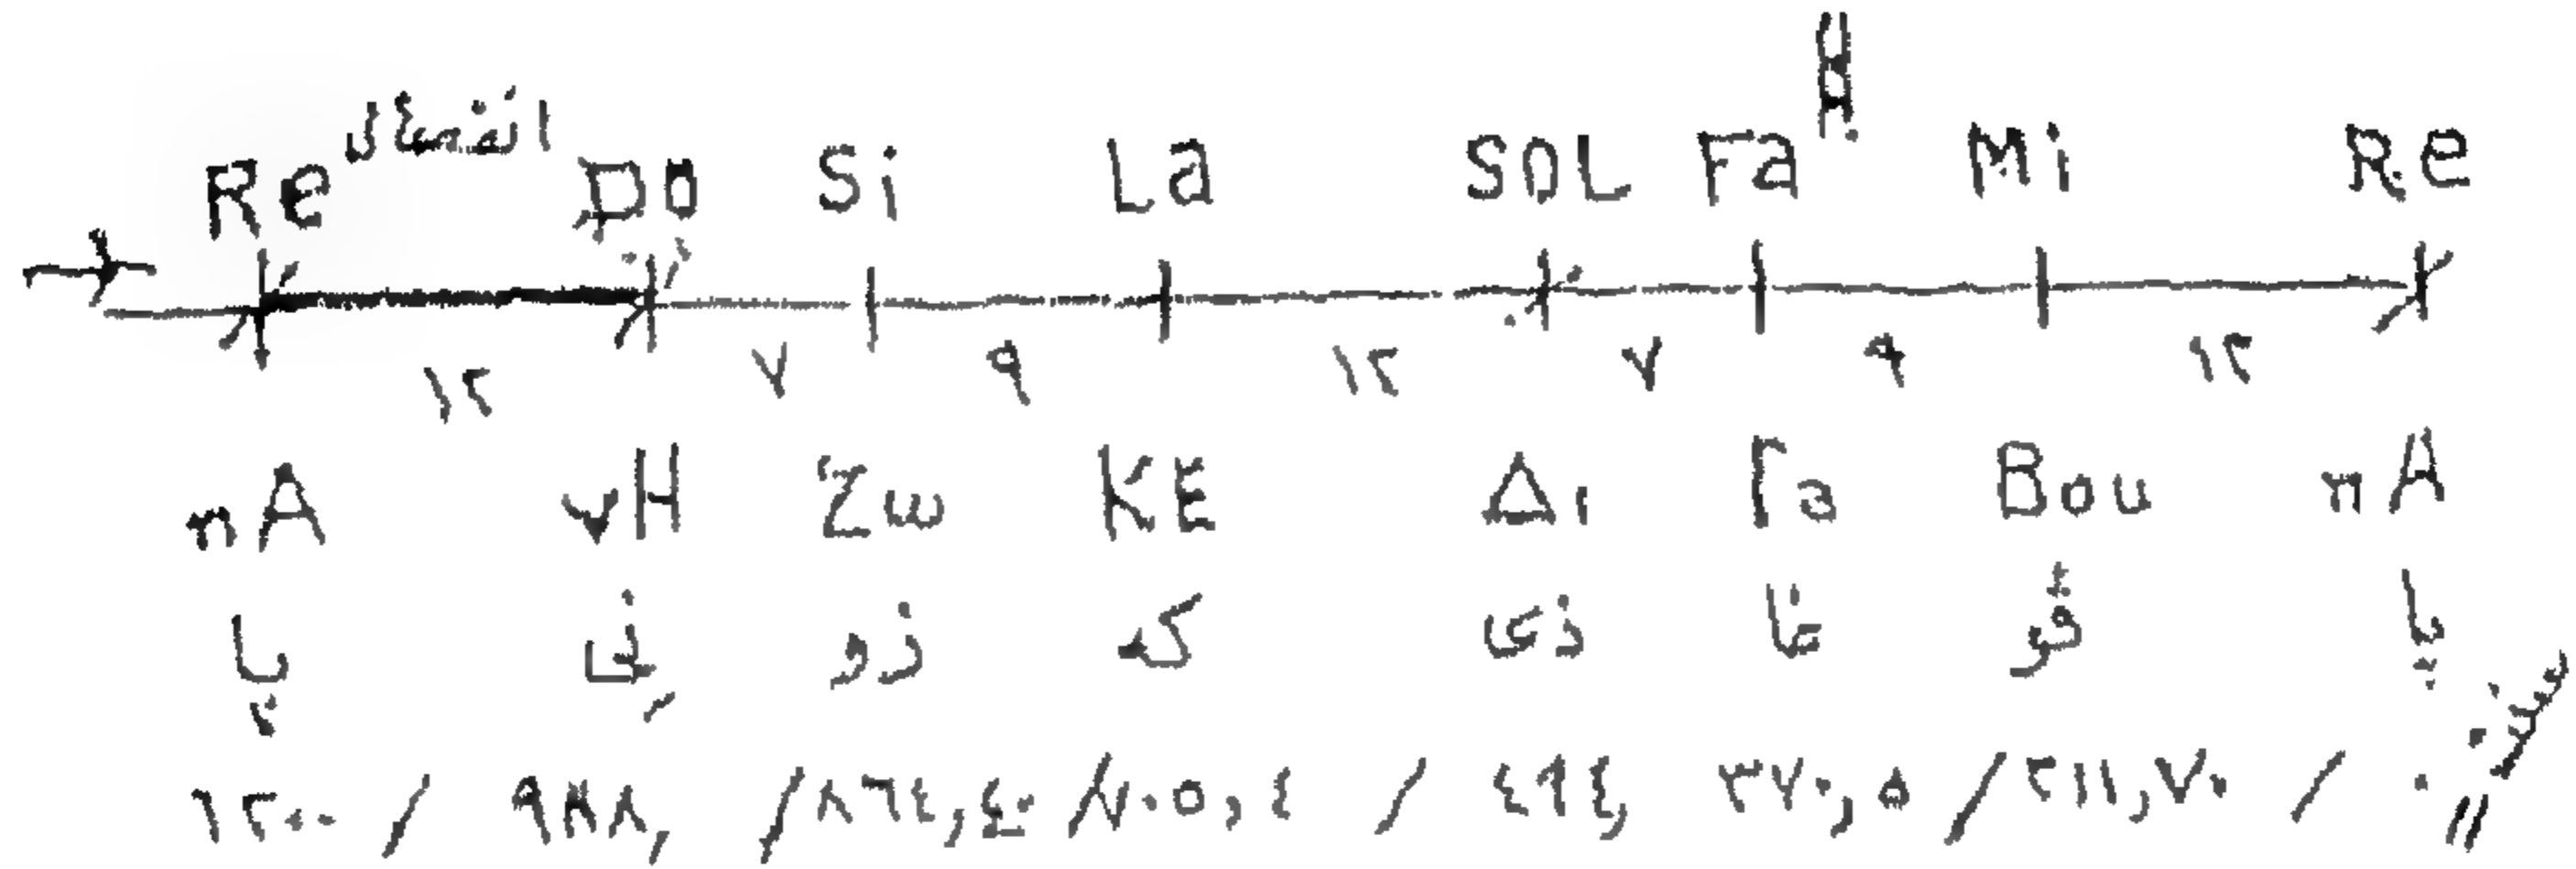 Re انفصال Do Si La SOL Fa Mi Re
١٢ ٧ ٩ ١٢ ٧ ٩ ١٢
πA νH Zω KE Δι Γa Bou πA
پا ني زو كه ذي غا ڤو پا
١٢٠٠ / ٩٨٨, / ٨٦٤,٤٠ / ٧٠٥,٤ / ٤٩٤, ٣٧٠,٥ / ٢١١,٧٠ / ٠